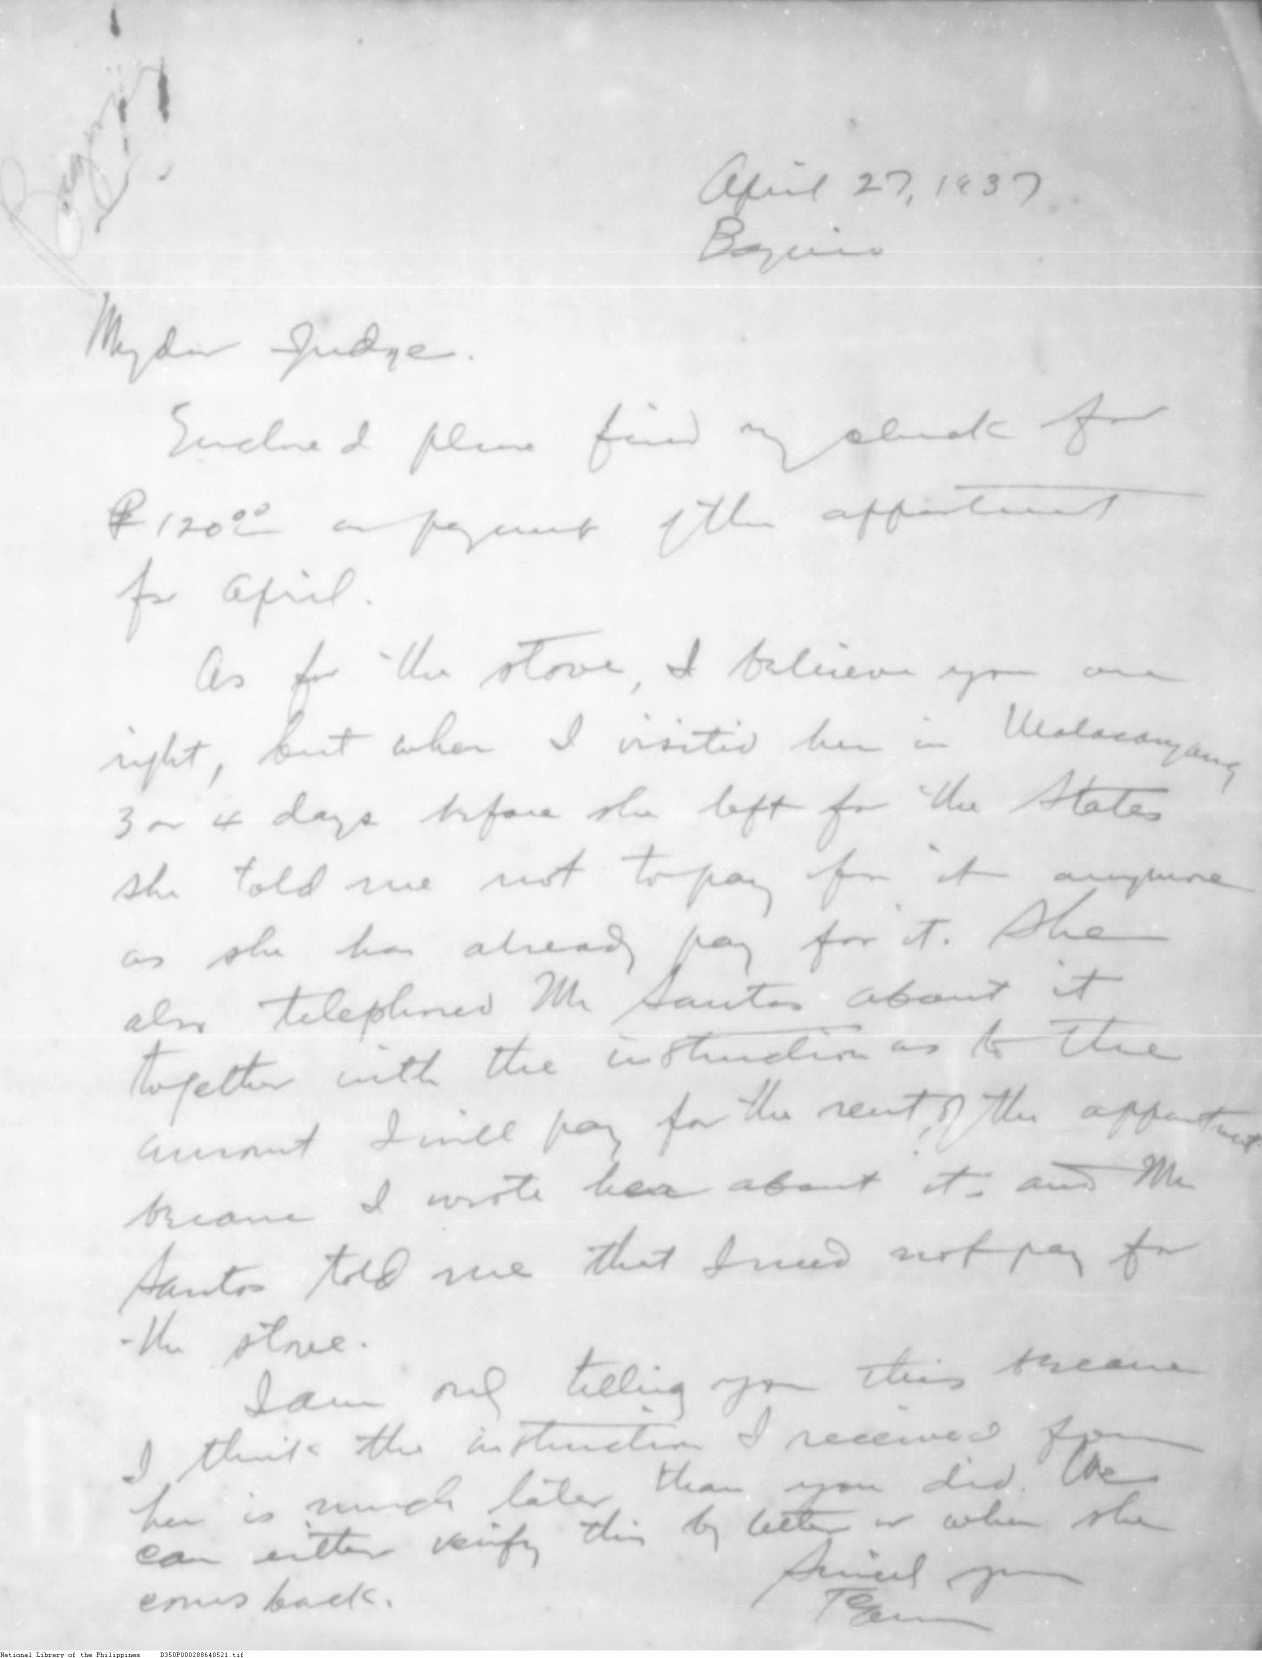 April 27, 1937
Baguio
My dear Judge.
Enclosed please find my check for
₱120.00 as payment of the appartment
for April.
As for the stove, I believe you are
right, but when I visited her in Malacanyang
3 or 4 days before she left for the States
she told me not to pay for it anymore
as she has already pay for it. She
also telephoned Mr Santos about it
together with the instruction as to the
amount I will pay for the rent of the appartment
because I wrote her about it. and Mr
Santos told me that I need not pay for
the stove.
I am only telling you this because
I think the instruction I received from
her is much later than you did. We
can either verify this by letter or when she
comes back.
Sincerely yours
National Library of the Philippines D350P000288640521.tif